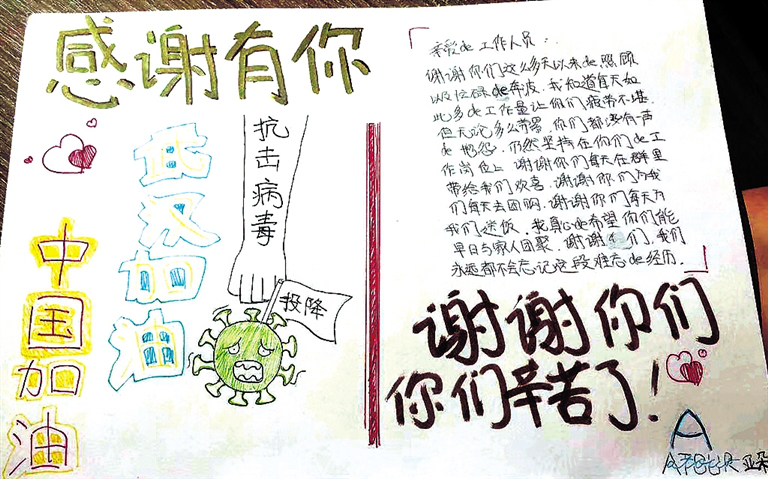 感谢有你
中国加油
武汉加油
抗击病毒
投降
亲爱de工作人员：
谢谢你们这么多天以来de照顾
以及忙碌de奔波．我知道每天如
此多de工作量让你们疲劳不堪．
但无论多么劳累．你们都没有一声
de抱怨．仍然坚持在你们de工
作岗位上．谢谢你们每天在群里
带给我们欢喜．谢谢你们为我
们每天去团购．谢谢你们每天为
我们送饭．我真心de希望你们能
早日与家人团聚．谢谢你们．我们
永远都不会忘记这段难忘de经历．
谢谢你们
你们辛苦了！
A
亚朵